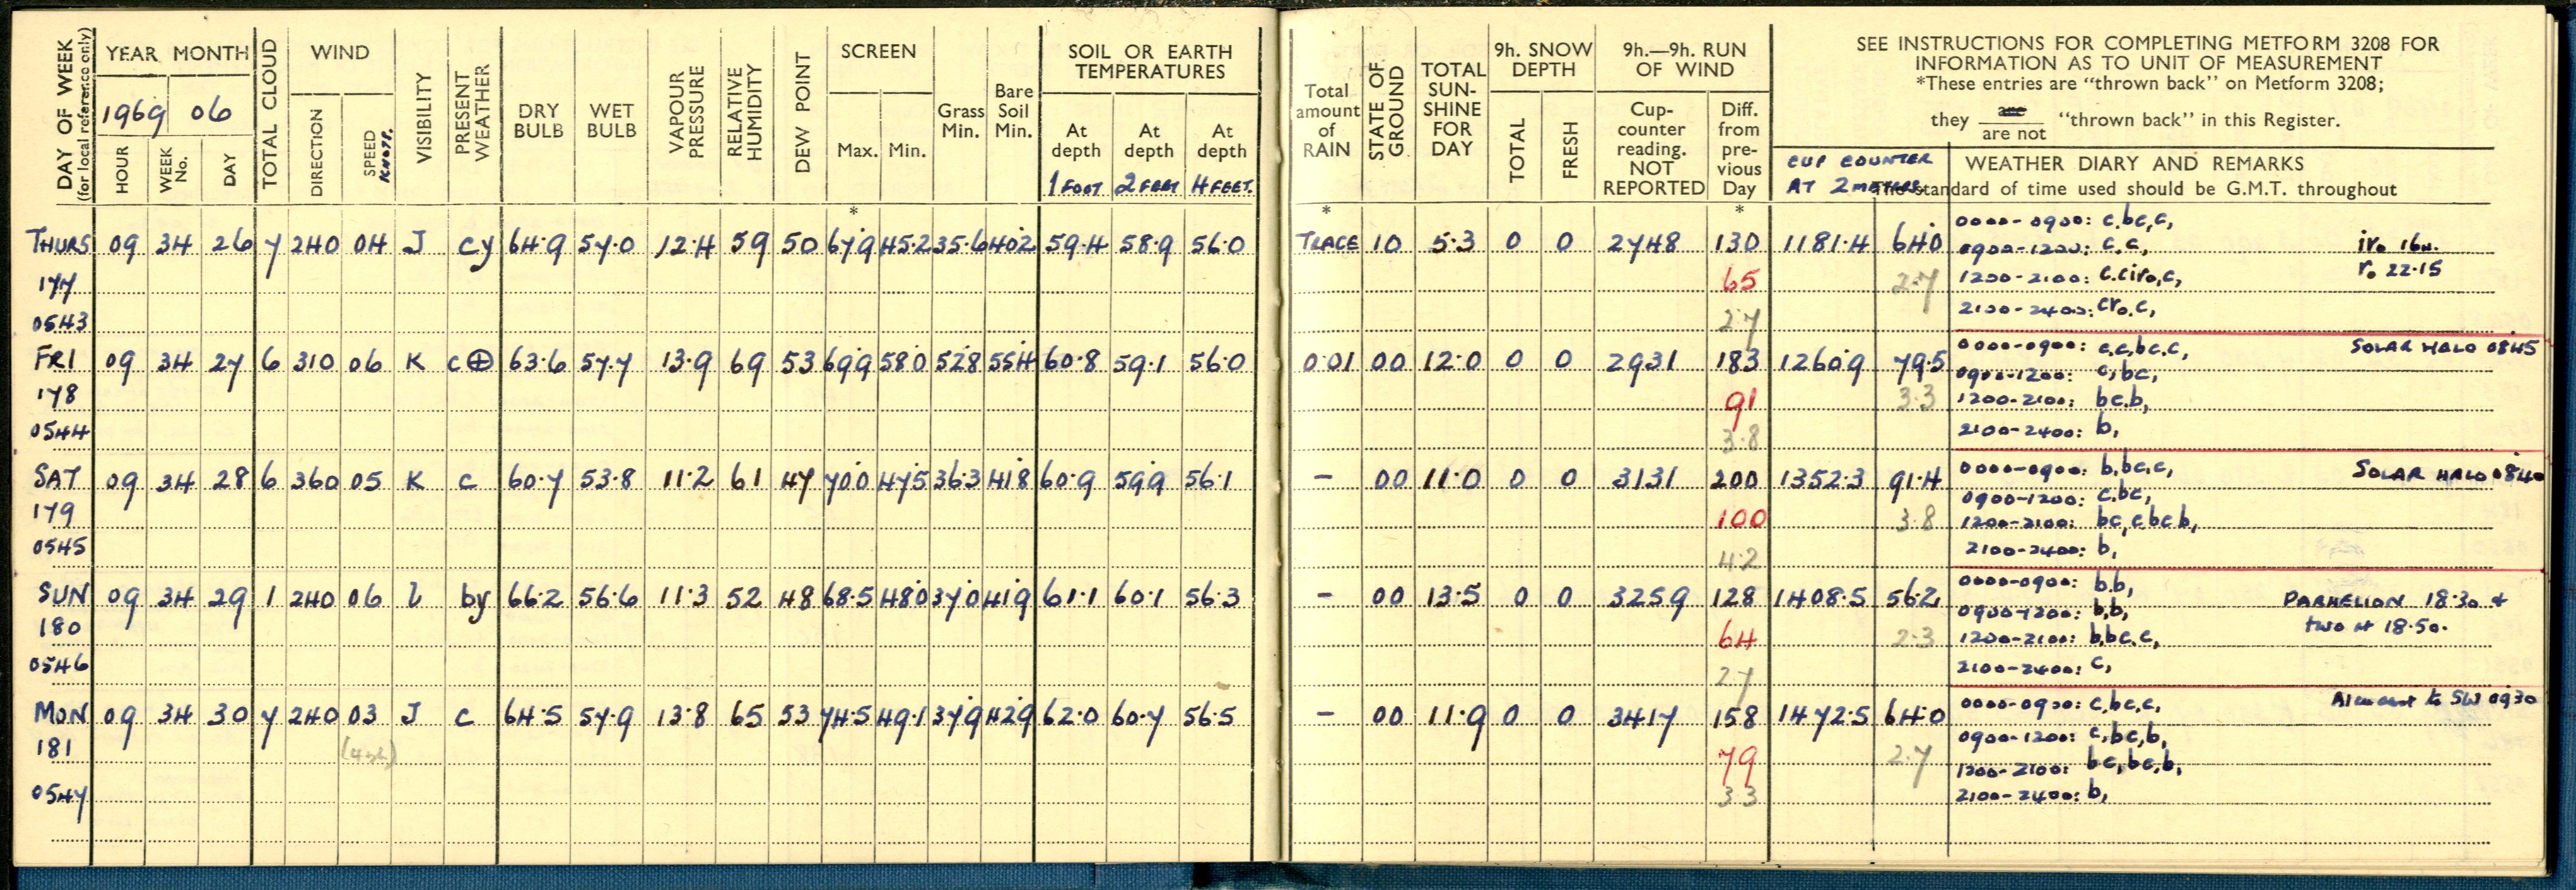 DAY OF WEEK
(for local reference only)
YEAR MONTH
1969 06
HOUR WEEK No. DAY
TOTAL CLOUD
WIND
DIRECTION SPEED KNOTS.
VISIBILITY
PRESENT WEATHER
DRY BULB
WET BULB
VAPOUR PRESSURE
RELATIVE HUMIDITY
DEW POINT
SCREEN
Max. Min.
*
Grass Min.
Bare Soil Min.
SOIL OR EARTH TEMPERATURES
At depth At depth At depth
1 FOOT 2 FEET 4 FEET.
Total amount of RAIN
*
STATE OF GROUND
TOTAL SUN-SHINE FOR DAY
9h. SNOW DEPTH
TOTAL FRESH
9h.—9h. RUN OF WIND
Cup-counter reading. NOT REPORTED
Diff. from pre-vious Day
*
SEE INSTRUCTIONS FOR COMPLETING METFORM 3208 FOR
INFORMATION AS TO UNIT OF MEASUREMENT
*These entries are "thrown back" on Metform 3208;
they are / are not "thrown back" in this Register.
CUP COUNTER
AT 2 METRES
WEATHER DIARY AND REMARKS
The standard of time used should be G.M.T. throughout
THURS 09 34 26 7 240 04 J cy 64.9 57.0 12.4 59 50 67.9 45.2 35.6 40.2 59.4 58.9 56.0 TRACE 10 5.3 0 0 2748 130 1181.4 64.0 0000-0900: c,bc,c,
0900-1200: c.c, iro 16H.
177 65 2.7 1200-2100: c.ciro,c, ro 22.15
0543 2.7 2100-2400: cro.c,
FRI 09 34 27 6 310 06 K c⊕ 63.6 57.7 13.9 69 53 69.9 58.0 52.8 55.4 60.8 59.1 56.0 0.01 00 12.0 0 0 2931 183 1260.9 79.5 0000-0900: c,c,bc.c, SOLAR HALO 0845
0900-1200: c,bc,
178 91 3.3 1200-2100: bc.b,
0544 3.8 2100-2400: b,
SAT 09 34 28 6 360 05 K c 60.7 53.8 11.2 61 47 70.0 47.5 36.3 41.8 60.9 59.9 56.1 – 00 11.0 0 0 3131 200 1352.3 91.4 0000-0900: b,bc,c, SOLAR HALO 0840
0900-1200: c,bc,
179 100 3.8 1200-2100: bc,c bc b,
0545 4.2 2100-2400: b,
SUN 09 34 29 1 240 06 l by 66.2 56.6 11.3 52 48 68.5 48.0 37.0 41.9 61.1 60.1 56.3 – 00 13.5 0 0 3259 128 1408.5 56.2 0000-0900: b.b, PARHELION 18.30 +
0900-1200: b,b, two at 18.50.
180 64 2.3 1200-2100: b,bc.c,
0546 2.7 2100-2400: c,
MON 09 34 30 7 240 03 J c 64.5 57.9 13.8 65 53 74.5 49.1 37.9 42.9 62.0 60.7 56.5 – 00 11.9 0 0 3417 158 1472.5 64.0 0000-0900: c,bc,c, to SW 0930
0900-1200: c,bc,b,
181 79 2.7 1200-2100: bc,bc,b,
0547 3.3 2100-2400: b,